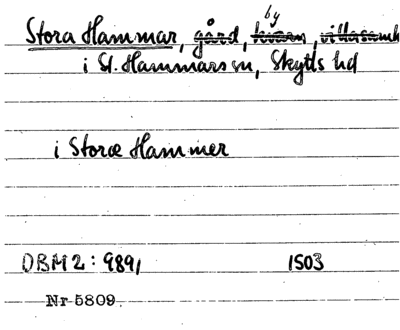 by
Stora Hammar, gård, kvarn, villasamh
i St. Hammars sn, Skytts hd
i Storæ Hammer
DBM 2: 9891 1503
Nr 5809